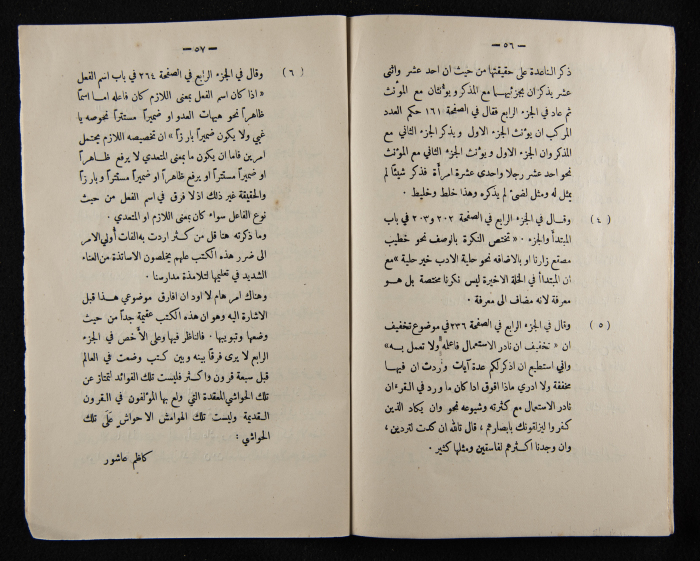 — ٥٦ —
ذكر القاعدة على حقيقتها من حيث ان احد عشر واثنى
عشر يذكران بجزئيهما مع المذكر ويؤنثان مع المؤنث
ثم عاد في الجزء الرابع فقال في الصفحة ١٦١ حكم العدد
المركب ان يؤنث الجزء الاول ويذكر الجزء الثاني مع
المذكر وان الجزء الاول ويؤنث الجزء الثاني مع المؤنث
نحو احد عشر رجلا واحدى عشرة امرأة فذكر شيئاً لم
يمثل له ومثل لشئ لم يذكره وهذا خلط وخليط .
( ٤ ) وقال في الجزء الرابع في الصفحة ٢٠٢ و٢٠٣ في باب
المبتدأ والجزء . « تختص النكرة بالوصف نحو خطيب
مصقع زارنا او بالاضافه نحو حلية الادب خير حلية » مع
ان المبتدأ في الحلة الاخيرة ليس نكرنا مختصة بل هو
معرفة لانه مضاف الى معرفة .
( ٥ ) وقال في الجزء الرابع في الصفحة ٢٣٦ في موضوع تخفيف
ان « تخفيف ان نادر الاستعمال فاعله ولا تعمل به »
واني استطيع ان اذكر لكم عدة آيات وردت ان فيها
مخففة ولا ادري ماذا اقول اذا كان ما ورد في القرءان
نادر الاستعمال مع كثرته وشيوعه نحو وان يكاد الذين
كفروا ليزلقونك بابصارهم ، قال تالله ان كدت لتردين ،
وان وجدنا اكثرهم لفاسقين ومثلها كثير .
— ٥٧ —
( ٦ ) وقال في الجزء الرابع في الصفحة ٢٦٤ في باب اسم الفعل
« اذا كان اسم الفعل بمعنى اللازم كان فاعله اما اسماً
ظاهراً نحو هيهات العدو او ضميراً مستتراً نحوصه يا
غبي ولا يكون ضميراً بارزاً » ان تخصيصه اللازم يحتمل
امرين فاما ان يكون ما بمعنى المتعدي لا يرفع ظاهراً
او ضميراً مستتراً او يرفع ظاهراً او ضميراً مستتراً وبارزاً
والحقيقة غير ذلك اذ لا فرق في اسم الفعل من حيث
نوع الفاعل سواء كان بمعنى اللازم او المتعدي .
وما ذكرته هنا قل من كثر اردت به الفات أولي الامر
الى ضرر هذه الكتب علهم يخلصون الاساتذة من العناء
الشديد في تعليمها لتلامذة مدارسنا .
وهناك امر هام لا اود ان افارق موضوعي هذا قبل
الاشارة اليه وهو ان هذه الكتب عقيمة جداً من حيث
وضعها وتبويبها . فالناظر فيها وعلى الأخص في الجزء
الرابع لا يرى فرقاً بينه وبين كتب وضعت في العالم
قبل سبعة قرون واكثر فليست تلك الفوائد لتمتاز عن
تلك الحواشي المعقدة التي ولع بها المؤلفون في القرون
القديمة وليست تلك الهوامش الا حواش على تلك
الحواشي :
كاظم عاشور